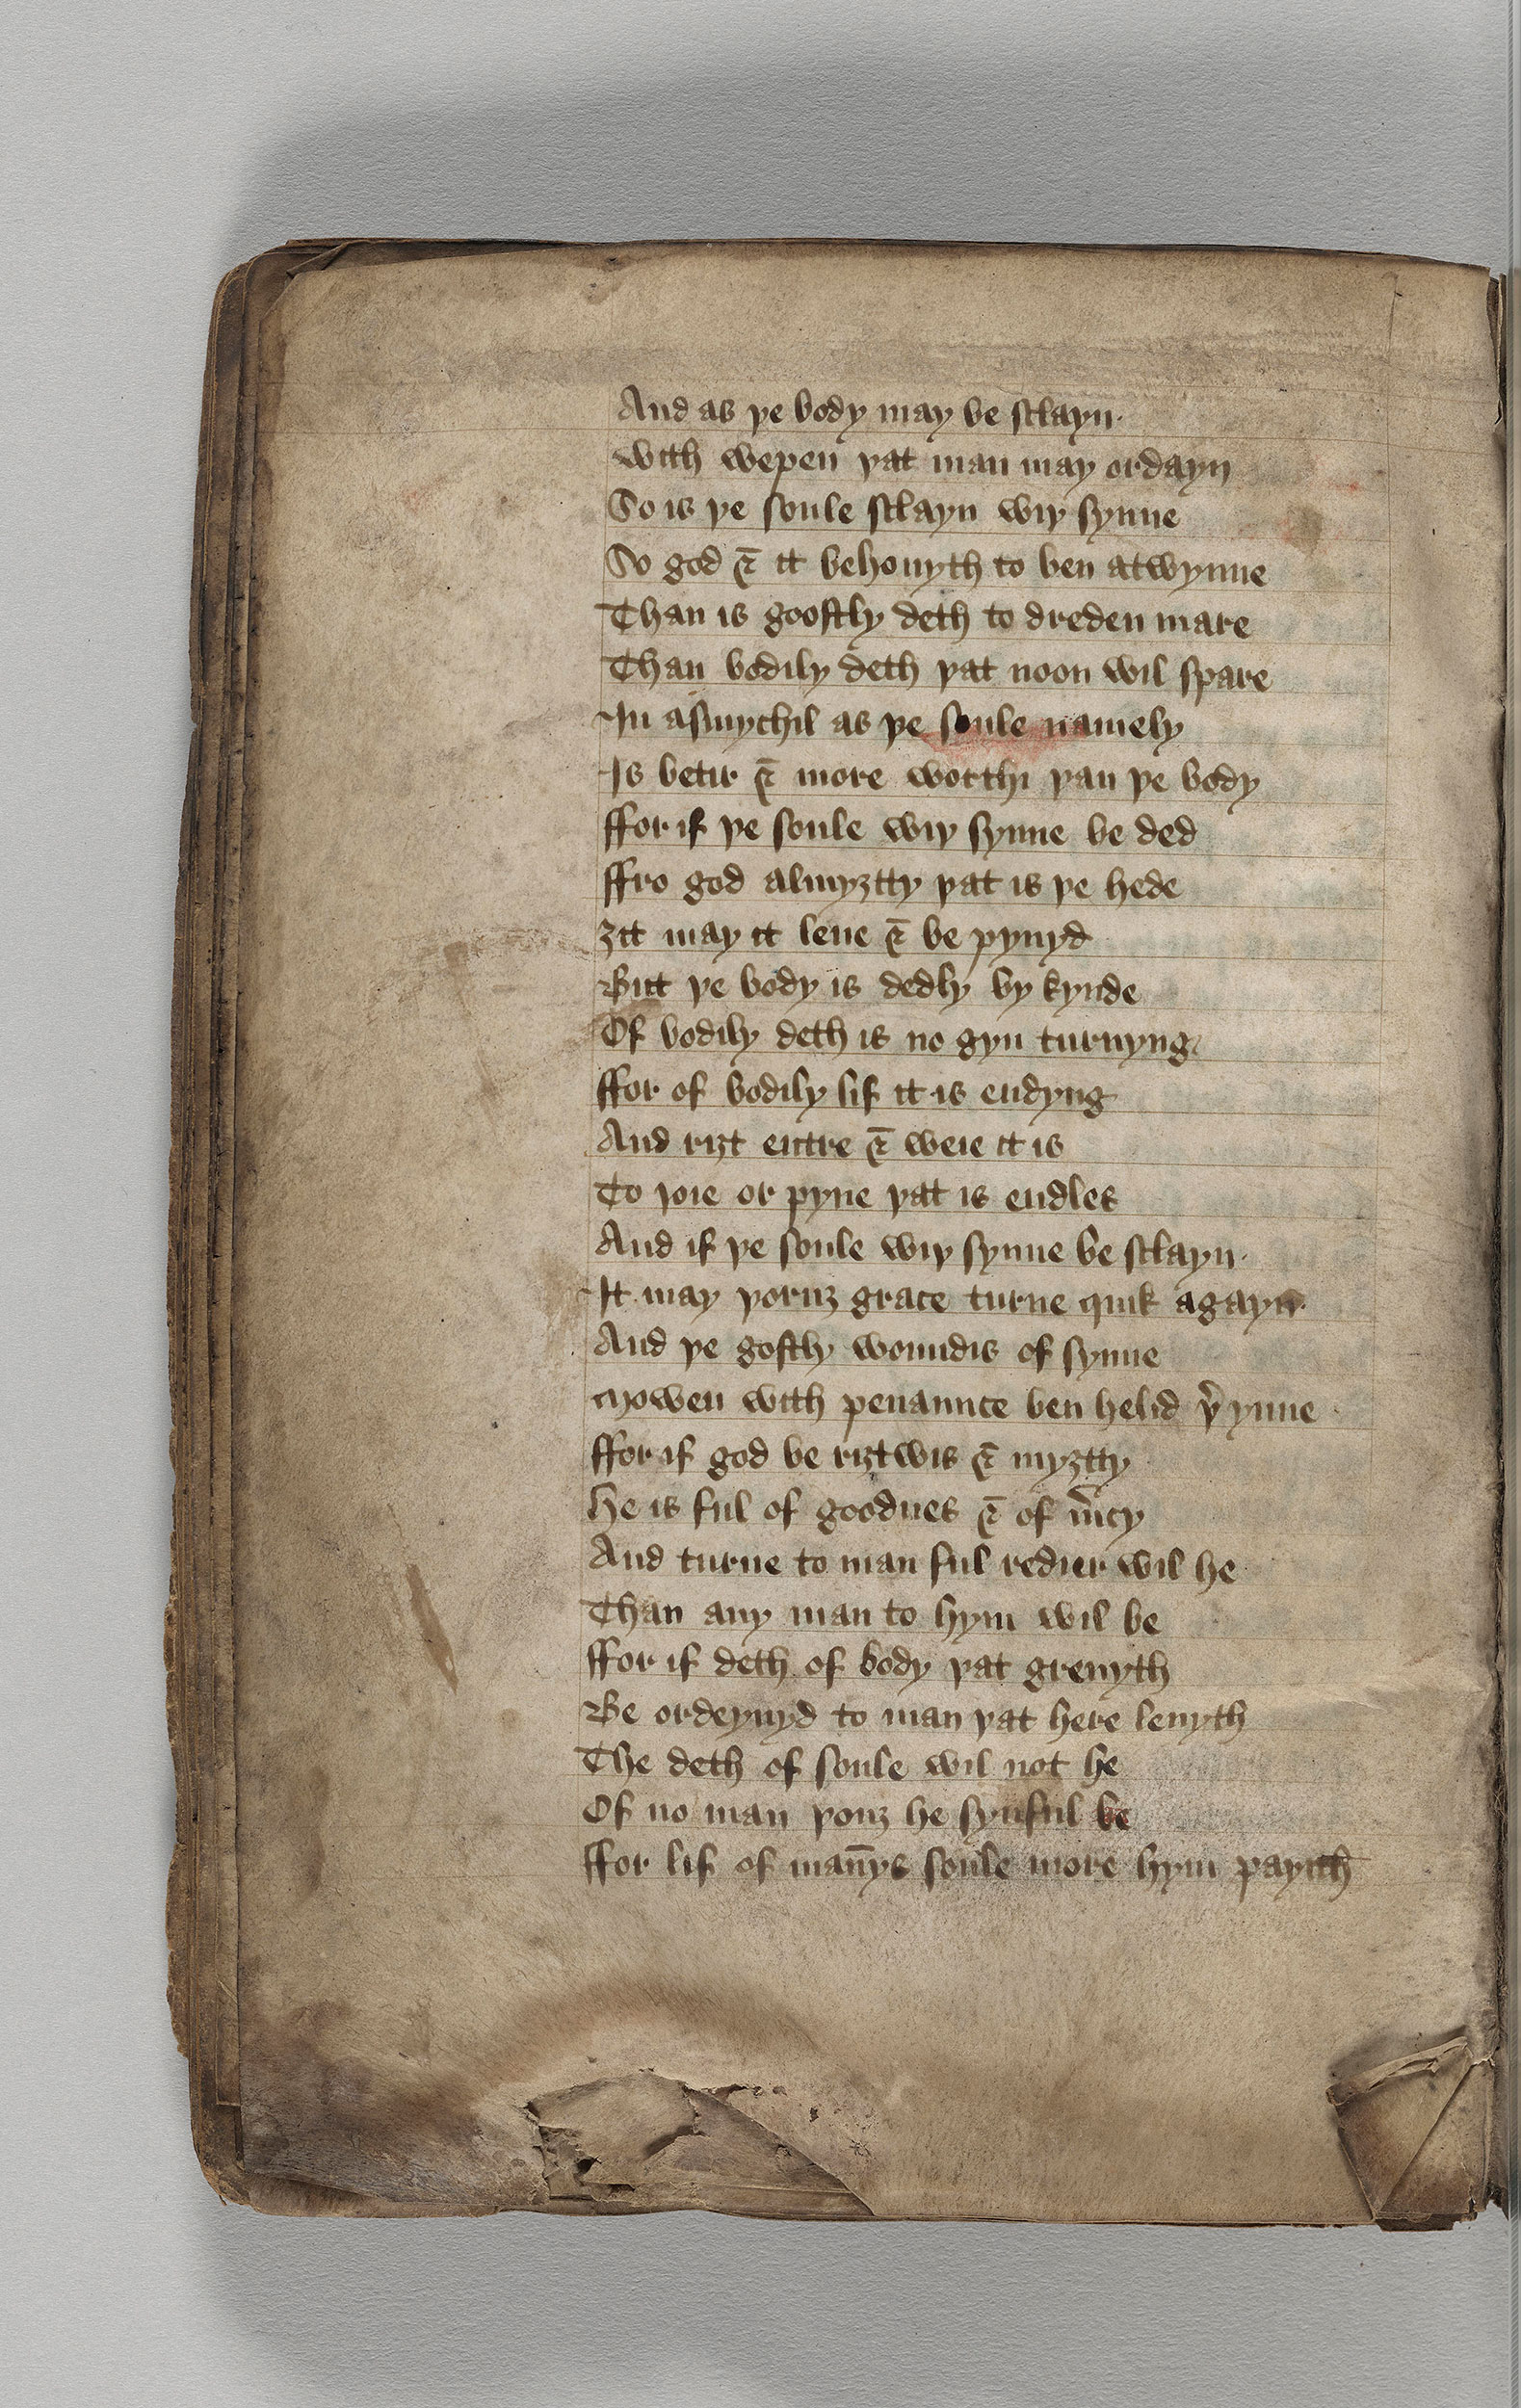 And as þe body may be sclayn·
with wepen þat man may ordayn
So is þe soule sclayn wiþ synne
So god ⁊ it behouyth to ben atwynne
Than is goostly deth to dreden mare
Than bodily deth þat noon wil spare
In asmychil as þe soule namely
Is betir ⁊ more worthi þan þe body
ffor if þe soule wiþ synne be ded
ffro god almyȝtty þat is þe hede
ȝit may it leue ⁊ be pynyd
But þe body is dedly by kynde
Of bodily deth is no gyn turnyng
ffor of bodily lif it is endyng
And riȝt entre ⁊ weie it is
To ioie or pyne þat is endles
And if þe soule wiþ synne be sclayn·
It may þoruȝ grace turne quik agayn·
And þe gostly woundis of synne
Mowen with penaunce ben helid þ̉ ynne
ffor if god be riȝtwis ⁊ myȝtty
He is ful of goodnes ⁊ of m̉cy
And turne to man ful redier wil he
Than any man to hym wil be
ffor if deth of body þat greuyth
Be ordeynyd to man þat here leuyth
The deth of soule wil not he
Of no man þouȝ he synful be
ffor lif of man̄ys soule more hym payith